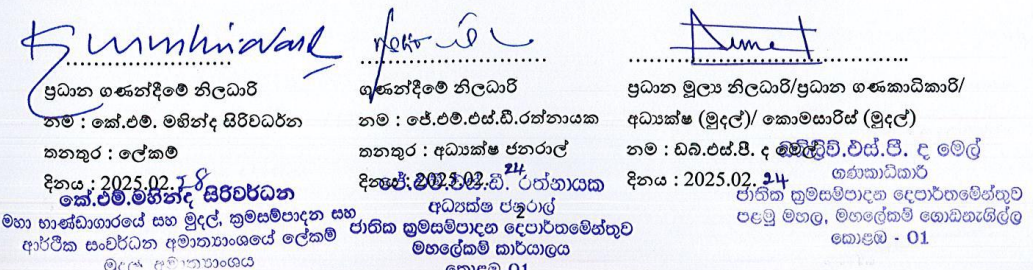 ප්‍රධාන ගණන්දීමේ නිලධාරි
නම : කේ.එම්. මහින්ද සිරිවර්ධන
තනතුර : ලේකම්
දිනය : 2025.02.28
කේ.එම්.මහින්ද සිරිවර්ධන
මහා භාණ්ඩාගාරයේ සහ මුදල්, ක්‍රමසම්පාදන සහ
ආර්ථික සංවර්ධන අමාත්‍යාංශයේ ලේකම්
මුදල් අමාත්‍යාංශය
ගණන්දීමේ නිලධාරි
නම : ජේ.එම්.එස්.ඩී.රත්නායක
තනතුර : අධ්‍යක්ෂ ජනරාල්
දිනය : 2025.02. 24
ජේ.එම්.එස්.ඩී. රත්නායක
අධ්‍යක්ෂ ජනරාල්
2
ජාතික ක්‍රමසම්පාදන දෙපාර්තමේන්තුව
මහලේකම් කාර්යාලය
කොළඹ 01
ප්‍රධාන මූල්‍ය නිලධාරි/ප්‍රධාන ගණකාධිකාරි/
අධ්‍යක්ෂ (මුදල්)/ කොමසාරිස් (මුදල්)
නම : ඩබ්.එස්.පී. ද මෙල්
දිනය : 2025.02. 24
එස්.පී. ද මෙල්
ගණකාධිකාරී
ජාතික ක්‍රමසම්පාදන දෙපාර්තමේන්තුව
පළමු මහල, මහලේකම් ගොඩනැගිල්ල
කොළඹ - 01